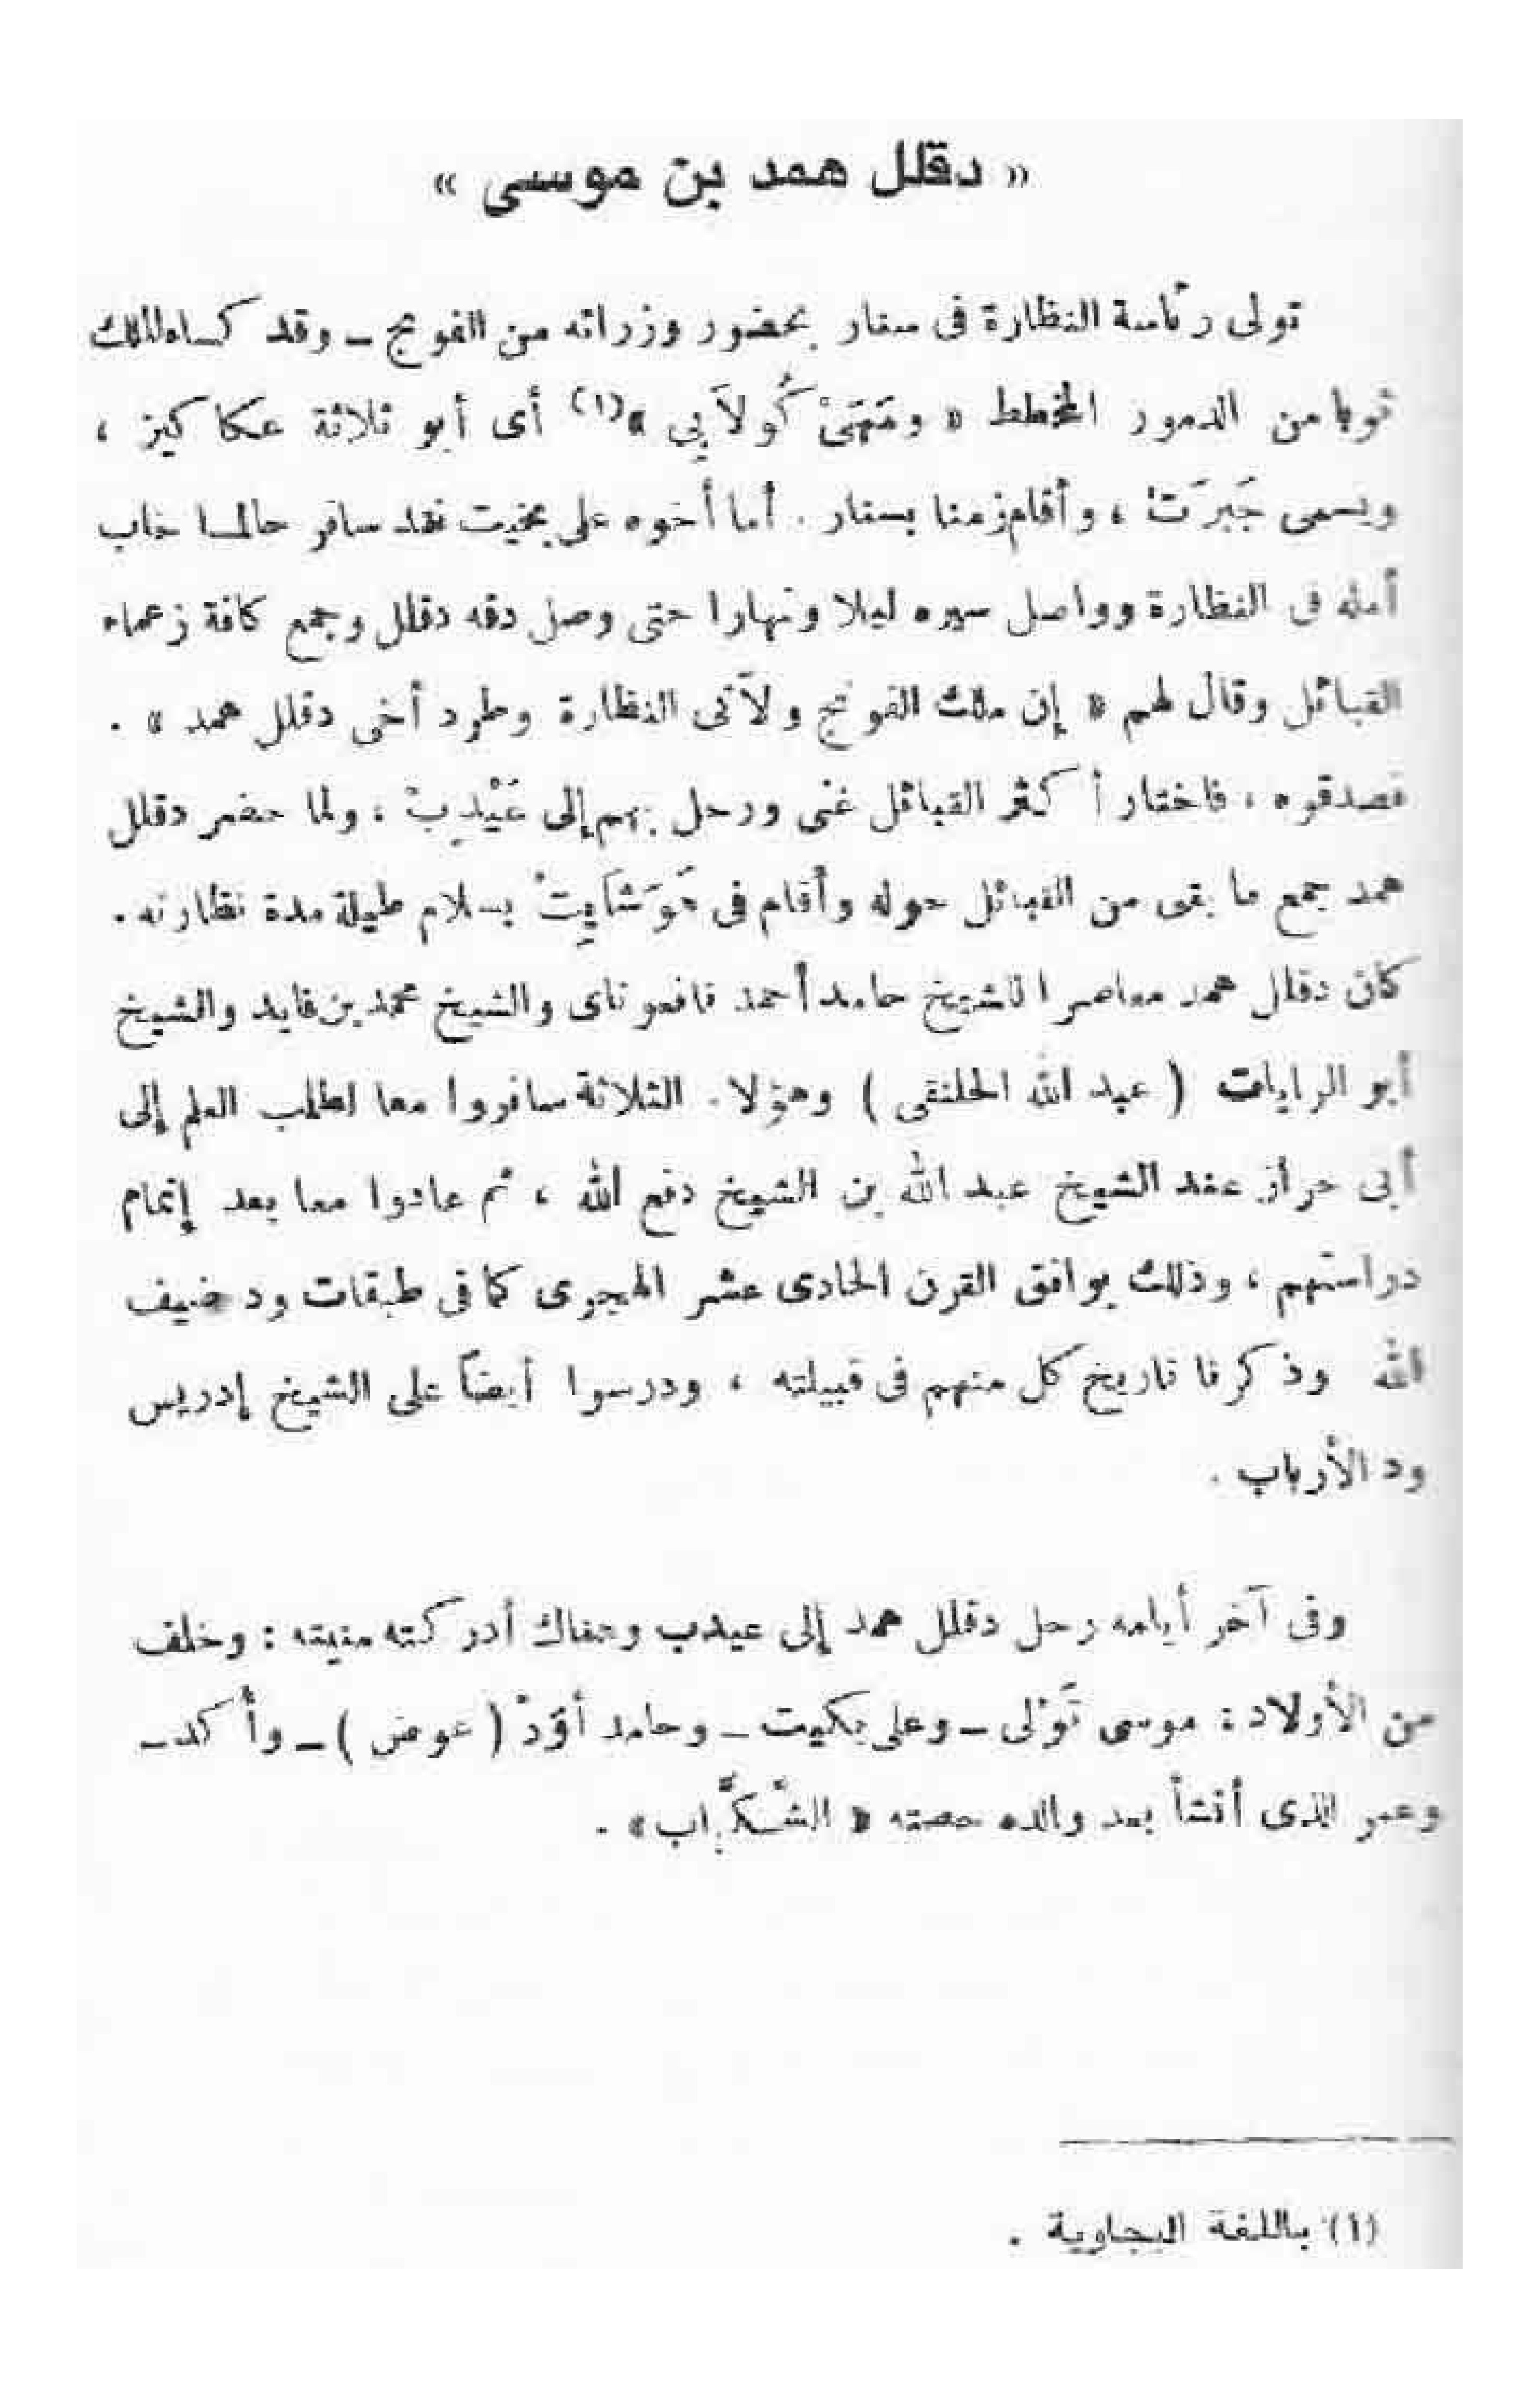 « دقلل همد بن موسى »
تولى رئاسة النظارة فى سنار بحضور وزرائه من الفونج ــ وقد كساه الملك
ثوبا من الدمور المخطط « ومَهَىْ كُولاَيِى »(١) أى أبو ثلاثة عكاكيز ،
ويسمى جَبَرَتْ ، وأقام زمنا بسنار . أما أخوه على بخيت فقد سافر حالما خاب
أمله فى النظارة وواصل سيره ليلا ونهارا حتى وصل دقه دقلل وجمع كافة زعماء
القبائل وقال لهم « إن ملك الفونج ولاَّنى النظارة وطرد أخى دقلل همد » .
فصدقوه ، فاختار أكثر القبائل غنى ورحل بهم إلى عَيْدِبْ ، ولما حضر دقلل
همد جمع ما بقى من القبائل حوله وأقام فى بسلام طيلة مدة نظارته .
كان دقلل همد معاصرا للشيخ حامد أحمد نافعوناى والشيخ محمد بن فايد والشيخ
أبو الرايات ( عبد الله الحلنقى ) وهؤلاء الثلاثة سافروا معا لطلب العلم إلى
أبى حراز عند الشيخ عبد الله بن الشيخ دفع الله ، ثم عادوا معا بعد إتمام
دراستهم ، وذلك يوافق القرن الحادى عشر الهجرى كما فى طبقات ود ضيف
الله وذكرنا تاريخ كل منهم فى قبيلته ، ودرسوا أيضاً على الشيخ إدريس
ود الأرباب .
وفى آخر أيامه رحل دقلل همد إلى عيدب وهناك أدركته منيته : وخلف
من الأولاد : موسى تَوْلى ــ وعلى بكيت ــ وحامد أوَدْ ( عوض ) ــ وأُكد ــ
وعمر الذى أنشأ بعد والده حصته « الشْكَّاب » .
(١) باللغة البجاوية .